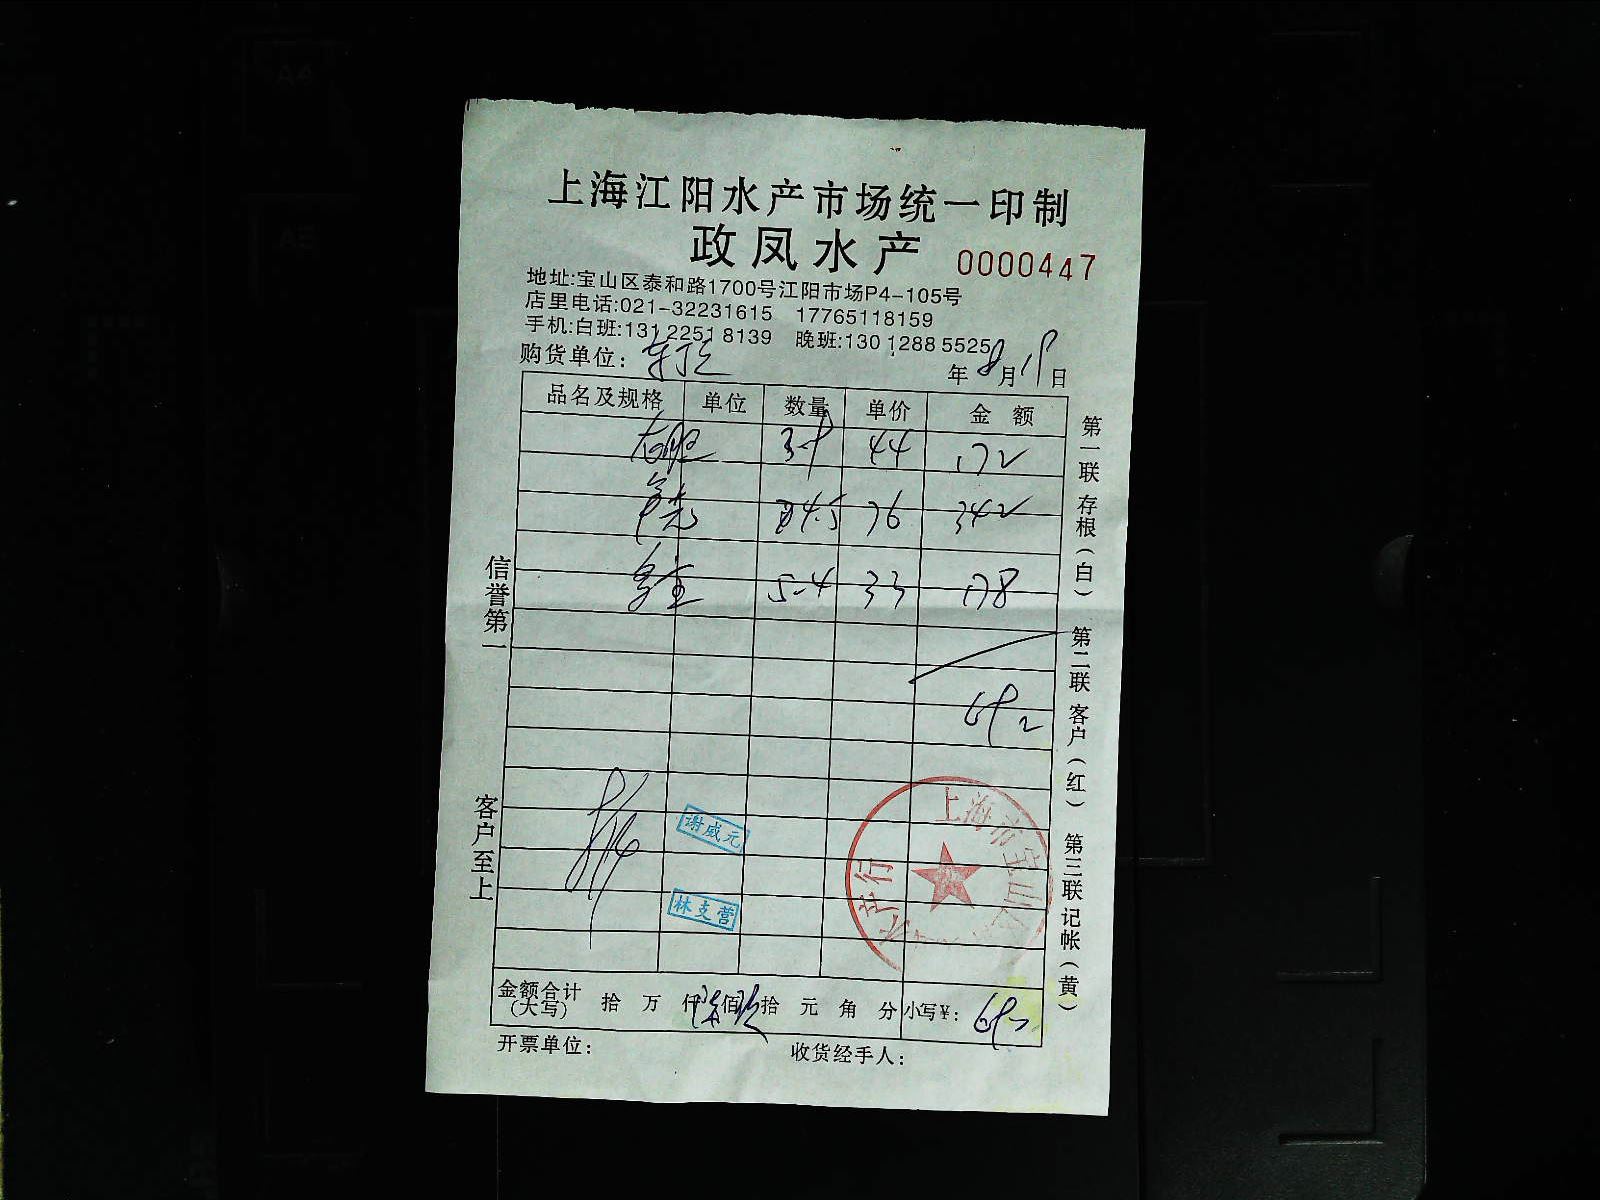 上海江阳水产市场统一印制
政凤水产 0000447
地址:宝山区泰和路1700号江阳市场P4-105号
店里电话:021-32231615 17765118159
手机:白班:131 2251 8139 晚班:130 1288 5525
购货单位:
年8月19日
品名及规格 单位 数量 单价 金额
44 172
4.5 76 342
5.4 33 178
692
谢威元
林支营
上海市宝山 产行
金额合计(大写) 拾 万 仟 佰 拾 元 角 分 小写¥: 692
开票单位: 收货经手人:
信誉第一
客户至上
第一联 存根(白)
第二联 客户(红)
第三联 记帐(黄)